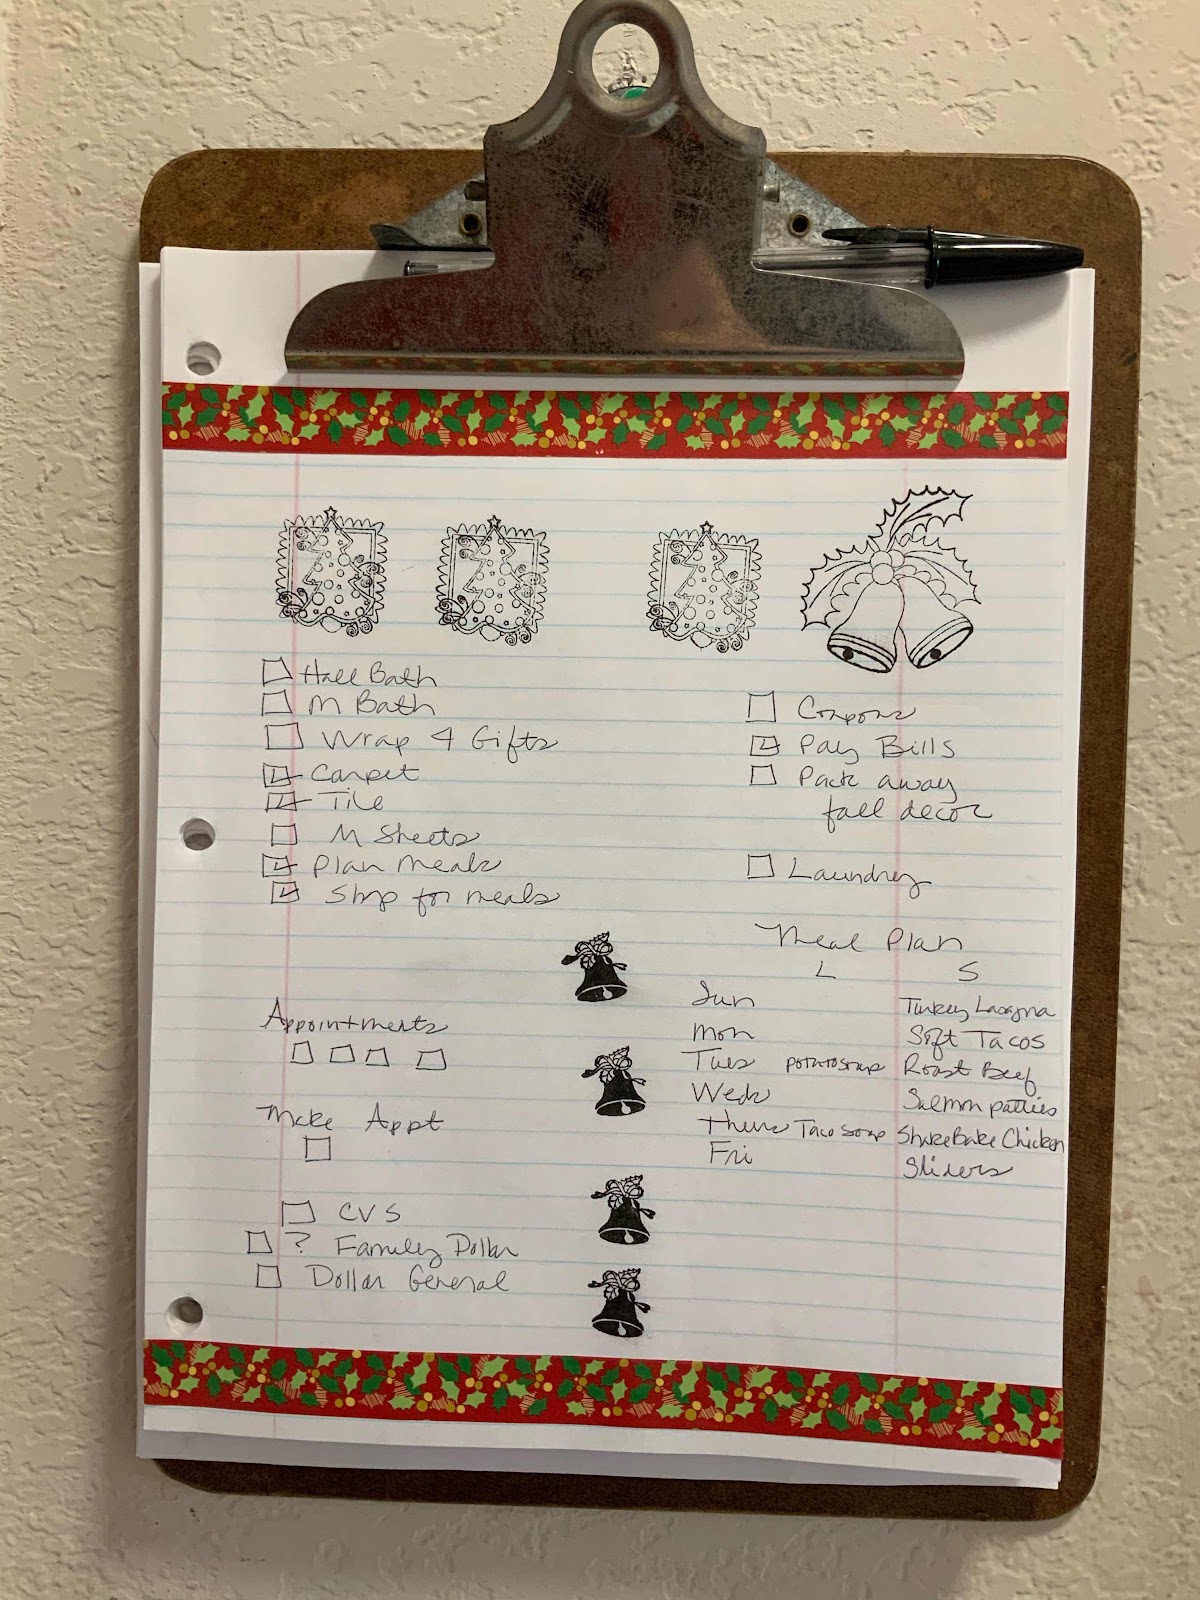 Hall Bath
M Bath
Wrap 4 Gifts
Carpet
Tile
M Sheets
Plan Meals
Shop for meals
Coupons
Pay Bills
Pack away
fall decor
Laundry
Appointments
Make Appt
CVS
? Family Dollar
Dollar General
Meal Plan
L S
Sun Turkey Lasagna
Mon Soft Tacos
Tues potato soup Roast Beef
Weds Salmon patties
Thurs Taco Soup Shake Bake Chicken
Fri Sliders